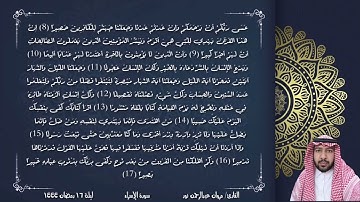 عَسَى رَبُّكُمْ أَنْ يَرْحَمَكُمْ وَإِنْ عُدْتُمْ عُدْنَا وَجَعَلْنَا جَهَنَّمَ لِلْكَافِرِينَ حَصِيرًا (8) إِنَّ
هَذَا الْقُرْآنَ يَهْدِي لِلَّتِي هِيَ أَقْوَمُ وَيُبَشِّرُ الْمُؤْمِنِينَ الَّذِينَ يَعْمَلُونَ الصَّالِحَاتِ
أَنَّ لَهُمْ أَجْرًا كَبِيرًا (9) وَأَنَّ الَّذِينَ لَا يُؤْمِنُونَ بِالْآخِرَةِ أَعْتَدْنَا لَهُمْ عَذَابًا أَلِيمًا (10)
وَيَدْعُ الْإِنْسَانُ بِالشَّرِّ دُعَاءَهُ بِالْخَيْرِ وَكَانَ الْإِنْسَانُ عَجُولًا (11) وَجَعَلْنَا اللَّيْلَ وَالنَّهَارَ
آيَتَيْنِ فَمَحَوْنَا آيَةَ اللَّيْلِ وَجَعَلْنَا آيَةَ النَّهَارِ مُبْصِرَةً لِتَبْتَغُوا فَضْلًا مِنْ رَبِّكُمْ وَلِتَعْلَمُوا
عَدَدَ السِّنِينَ وَالْحِسَابَ وَكُلَّ شَيْءٍ فَصَّلْنَاهُ تَفْصِيلًا (12) وَكُلَّ إِنْسَانٍ أَلْزَمْنَاهُ طَائِرَهُ
فِي عُنُقِهِ وَنُخْرِجُ لَهُ يَوْمَ الْقِيَامَةِ كِتَابًا يَلْقَاهُ مَنْشُورًا (13) اقْرَأْ كِتَابَكَ كَفَى بِنَفْسِكَ
الْيَوْمَ عَلَيْكَ حَسِيبًا (14) مَنِ اهْتَدَى فَإِنَّمَا يَهْتَدِي لِنَفْسِهِ وَمَنْ ضَلَّ فَإِنَّمَا
يَضِلُّ عَلَيْهَا وَلَا تَزِرُ وَازِرَةٌ وِزْرَ أُخْرَى وَمَا كُنَّا مُعَذِّبِينَ حَتَّى نَبْعَثَ رَسُولًا (15)
وَإِذَا أَرَدْنَا أَنْ نُهْلِكَ قَرْيَةً أَمَرْنَا مُتْرَفِيهَا فَفَسَقُوا فِيهَا فَحَقَّ عَلَيْهَا الْقَوْلُ فَدَمَّرْنَاهَا
تَدْمِيرًا (16) وَكَمْ أَهْلَكْنَا مِنَ الْقُرُونِ مِنْ بَعْدِ نُوحٍ وَكَفَى بِرَبِّكَ بِذُنُوبِ عِبَادِهِ خَبِيرًا
بَصِيرًا (17)
القارئ: مروان عبدالرحمن نور سورة الإسراء ليلة ١٦ رمضان ١٤٤٤